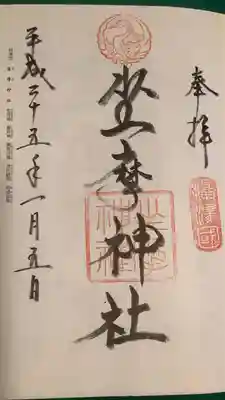 奉拝
坐摩神社
平成二十五年一月五日